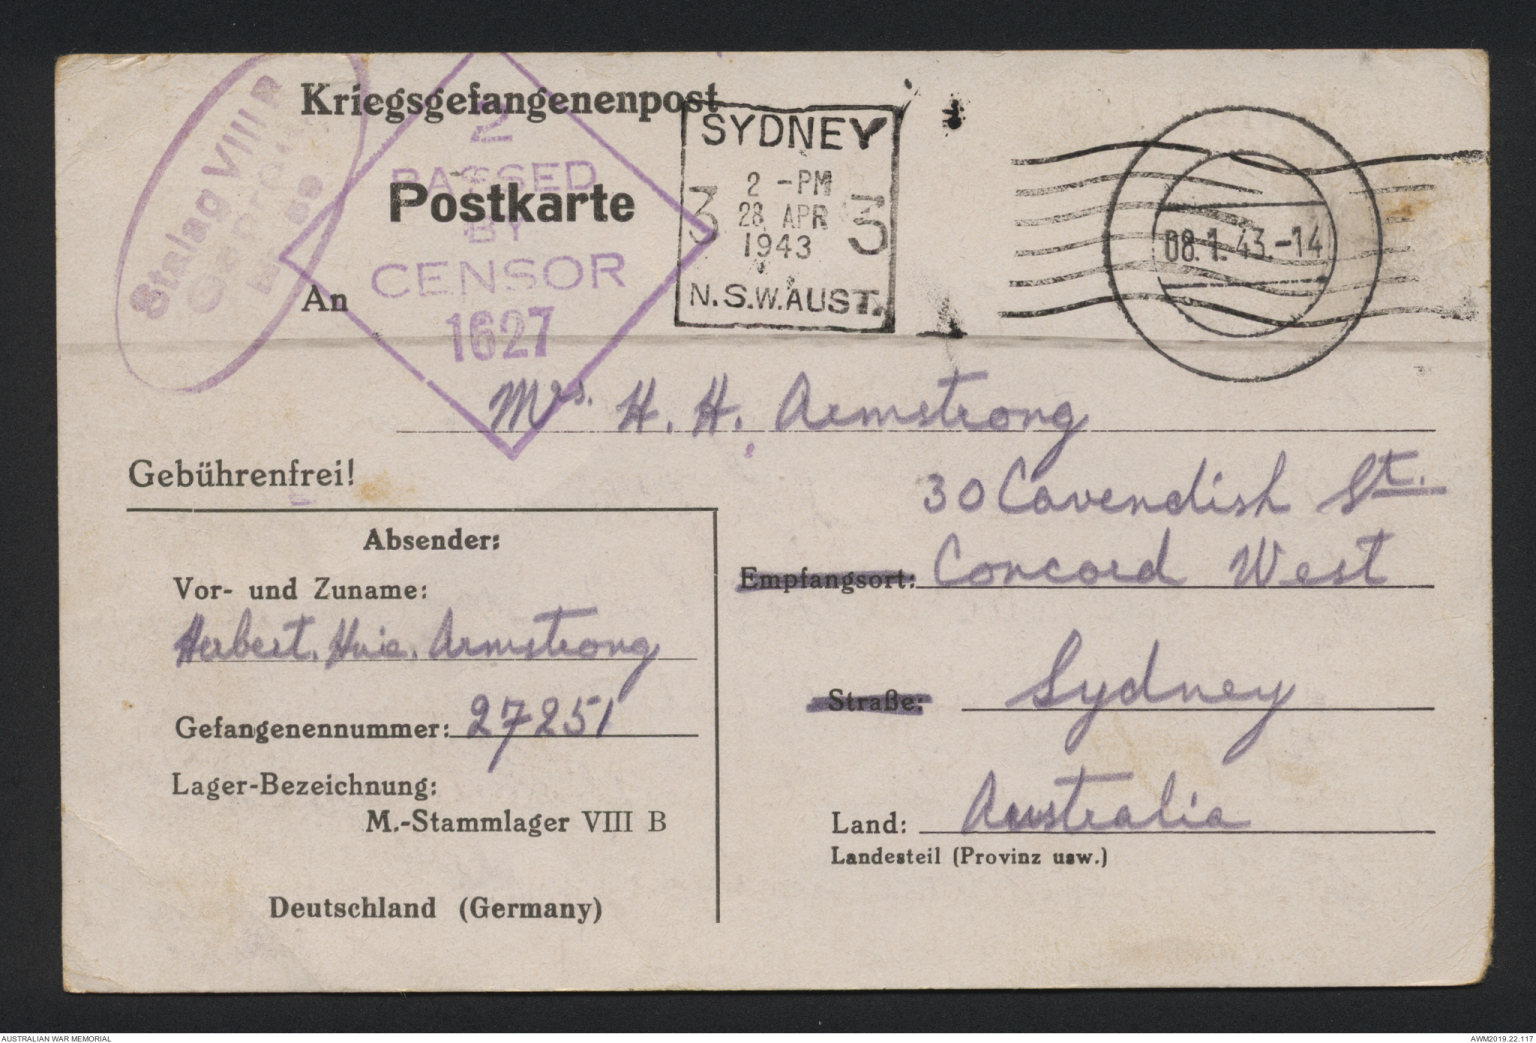 Kriegsgefangenenpost
Postkarte
An
Stalag VIII B
Geprüft
2
PASSED
BY
CENSOR
1627
SYDNEY
2 -PM
3 28 APR 3
1943
N.S.W.AUST.
08.1.43.-14
Mrs. H. H. Armstrong
30 Cavendish St.
Empfangsort: Concord West
Straße: Sydney
Land: Australia
Landesteil (Provinz usw.)
Gebührenfrei!
Absender:
Vor- und Zuname:
Herbert. Huie. Armstrong
Gefangenennummer: 27251
Lager-Bezeichnung:
M.-Stammlager VIII B
Deutschland (Germany)
AUSTRALIAN WAR MEMORIAL
AWM2019.22.117